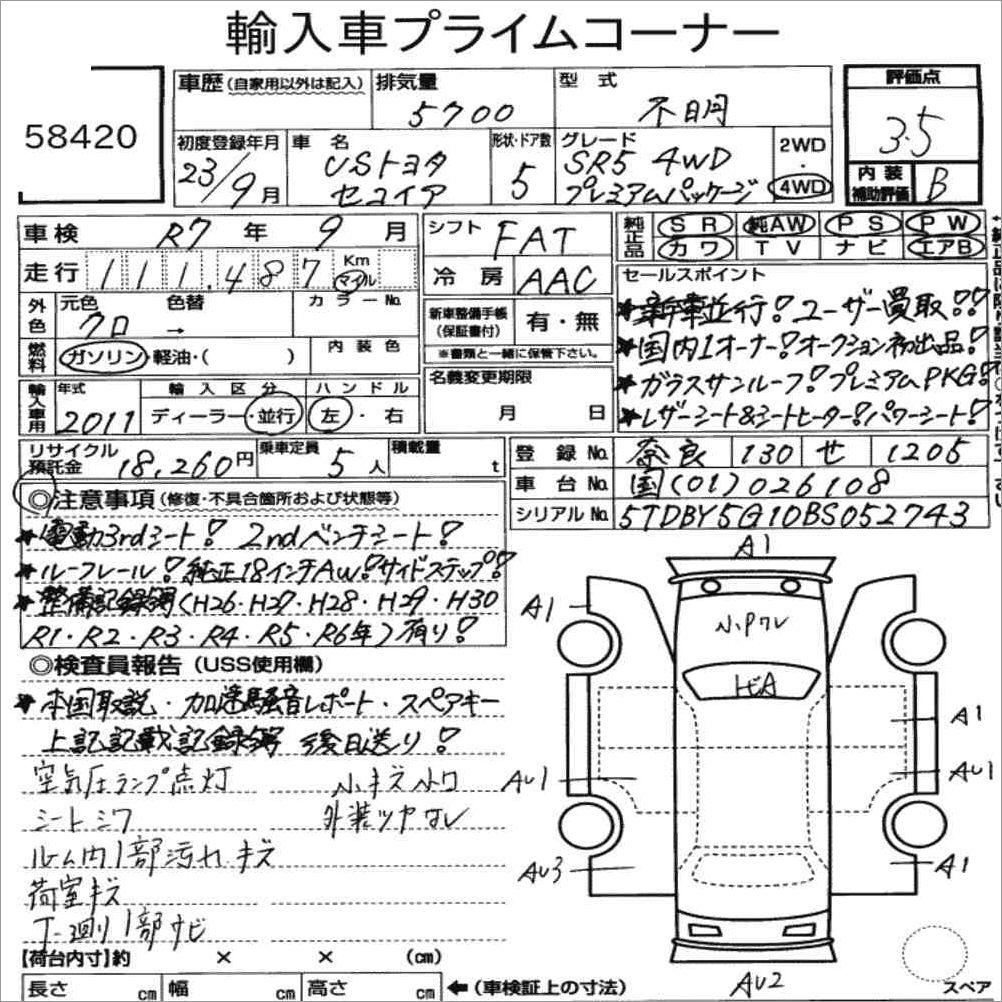 輸入車プライムコーナー
58420
車歴(自家用以外は記入)
排気量 5700
型式 不明
評価点 3.5
初度登録年月 23/9月
車名 USトヨタ セコイア
形状・ドア数 5
グレード SR5 4WD プレミアムパッケージ
2WD・4WD
内装補助評価 B
車検 R7年 9月
シフト FAT
純正品 SR 純AW PS PW
カワ TV ナビ エアB
走行 111,487 Km マイル
冷房 AAC
セールスポイント
外色 元色 クロ 色替 → カラーNo.
新車整備手帳(保証書付) 有・無
※書類と一緒に保管下さい。
★新車並行! ユーザー買取!!
★国内1オーナー! オークション初出品!
★ガラスサンルーフ! プレミアムPKG!
★レザーシート&シートヒーター! パワーシート!
燃料 ガソリン・軽油・( ) 内装色
名義変更期限 月 日
輸入車用 年式 2011
輸入区分 ディーラー・並行
ハンドル 左・右
リサイクル預託金 18,260円
乗車定員 5人
積載量 t
登録No. 奈良 130 せ 1205
車台No. 国(01)026108
シリアルNo. 5TDBY5G10BS052743
◎注意事項(修復・不具合箇所および状態等)
★電動3rdシート! 2ndベンチシート!
★ルーフレール! 純正18インチAW! サイドステップ!
★整備記録簿(H26・H27・H28・H29・H30
R1・R2・R3・R4・R5・R6年)有り!
◎検査員報告(USS使用欄)
★本国取説・加速騒音レポート・スペアキー
上記記載記録簿 後日送り!
空気圧ランプ点灯 小キズ小ワ
シートシワ 外装ツヤなし
ルーム内1部汚れキズ
荷室キズ
下廻り1部サビ
A1
A1
小、Pワレ
トビA
A1
AU1
AU1
AU3
A1
AU2
スペア
【荷台内寸】約 × × (cm)
長さ cm 幅 cm 高さ cm ←(車検証上の寸法)